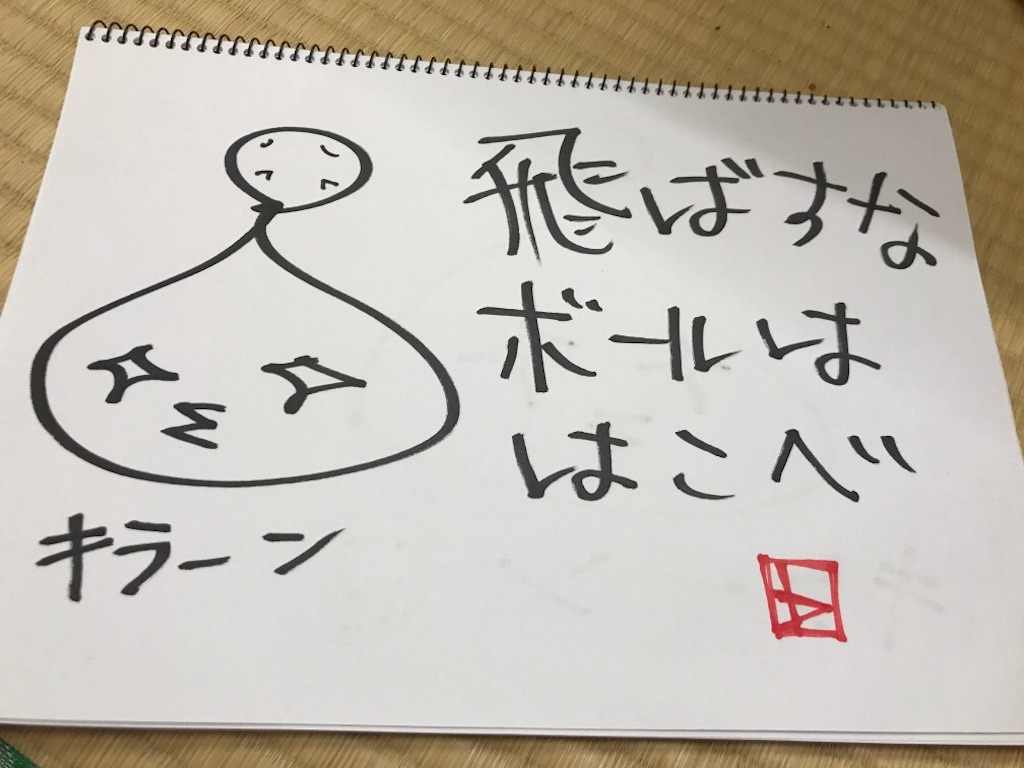 飛ばすな
ボールは
はこべ
キラーン